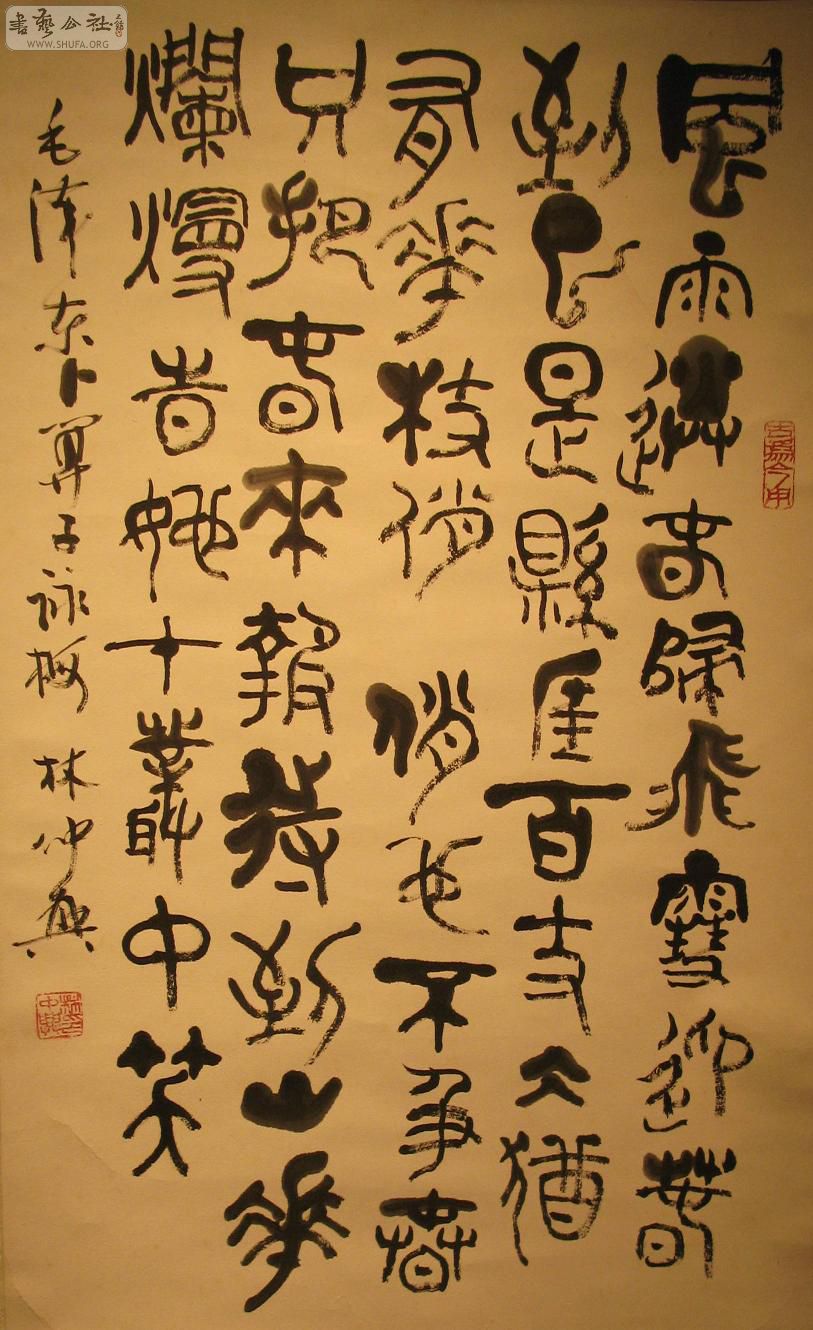 書藝公社
WWW.SHUFA.ORG
風雨送春歸飛雪迎春
到已是縣厓百丈冰猶
有花枝俏 俏也不爭春
只把春來報待到山花
爛熳旹她在叢中笑
毛澤東卜算子詠梅 林仲興
古爲今用